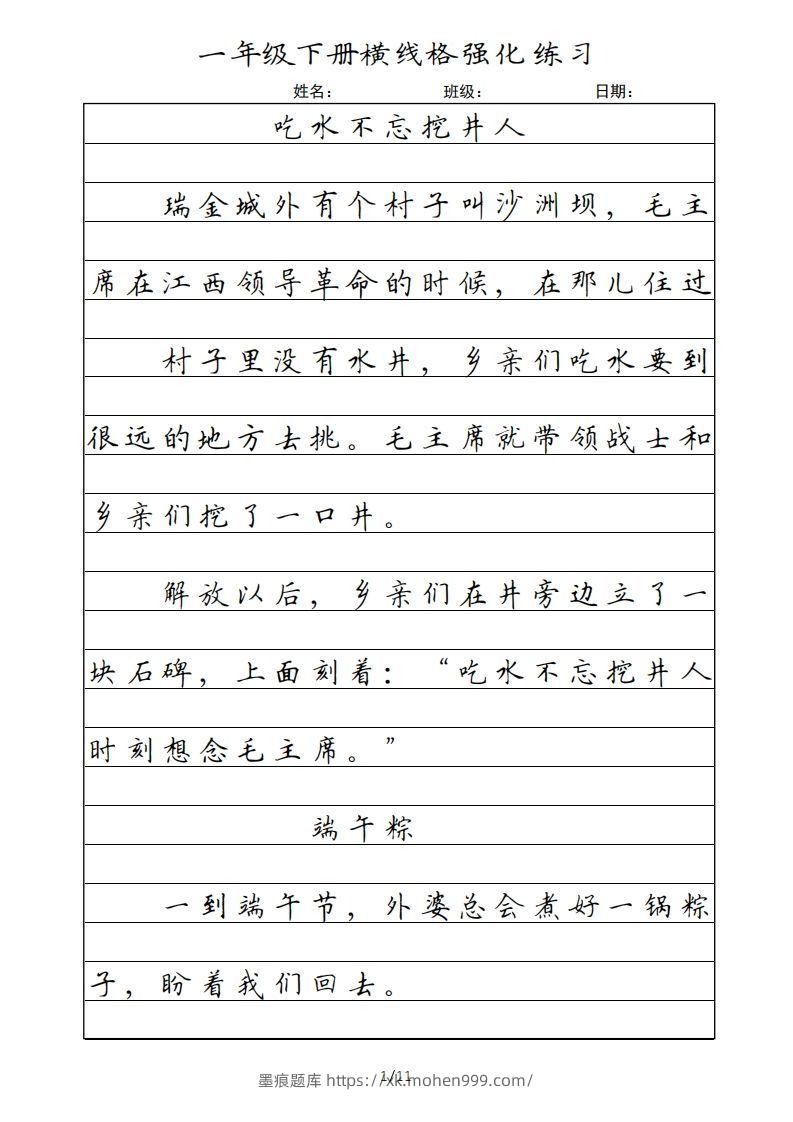 一年级下册横线格强化练习
姓名： 班级： 日期：
吃水不忘挖井人
瑞金城外有个村子叫沙洲坝，毛主
席在江西领导革命的时候，在那儿住过
村子里没有水井，乡亲们吃水要到
很远的地方去挑。毛主席就带领战士和
乡亲们挖了一口井。
解放以后，乡亲们在井旁边立了一
块石碑，上面刻着：“吃水不忘挖井人
时刻想念毛主席。”
端午粽
一到端午节，外婆总会煮好一锅粽
子，盼着我们回去。
1/11
墨痕题库 https://xk.mohen999.com/